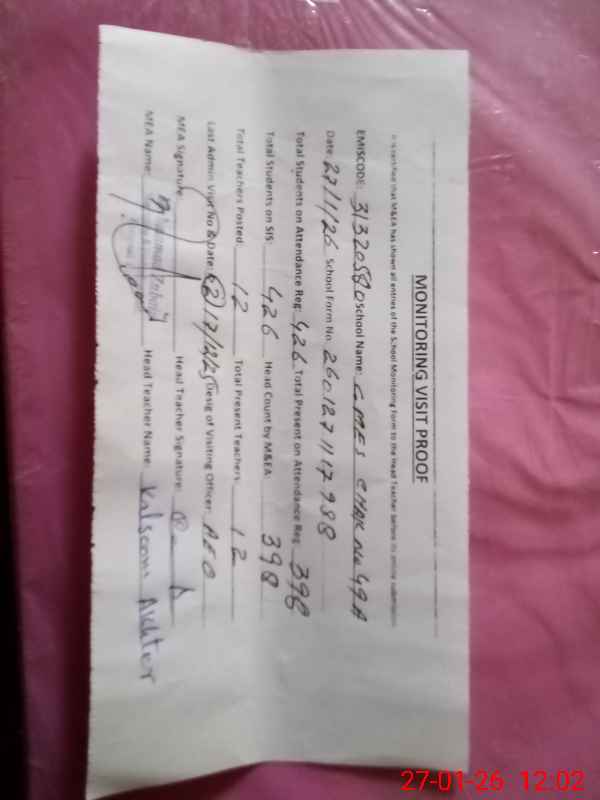 MONITORING VISIT PROOF
It is certified that M&EA has shown all entries of the School Monitoring Form to the Head Teacher before its online submission
EMISCODE: 31320580 School Name: GMES CHAK No 49A
Date: 27/1/26 School Form No. 2601271117988
Total Students on Attendance Reg: 426 Total Present on Attendance Reg: 398
Total Students on SIS: 426 Head Count by M&EA: 398
Total Teachers Posted: 12 Total Present Teachers: 12
Last Admin Visit No & Date: (2) 17/12/25 Desig of Visiting Officer: AEO
MEA Signature Head Teacher Signature:
MEA Name: Head Teacher Name: Kalsoom Akhter
27-01-26 12:02